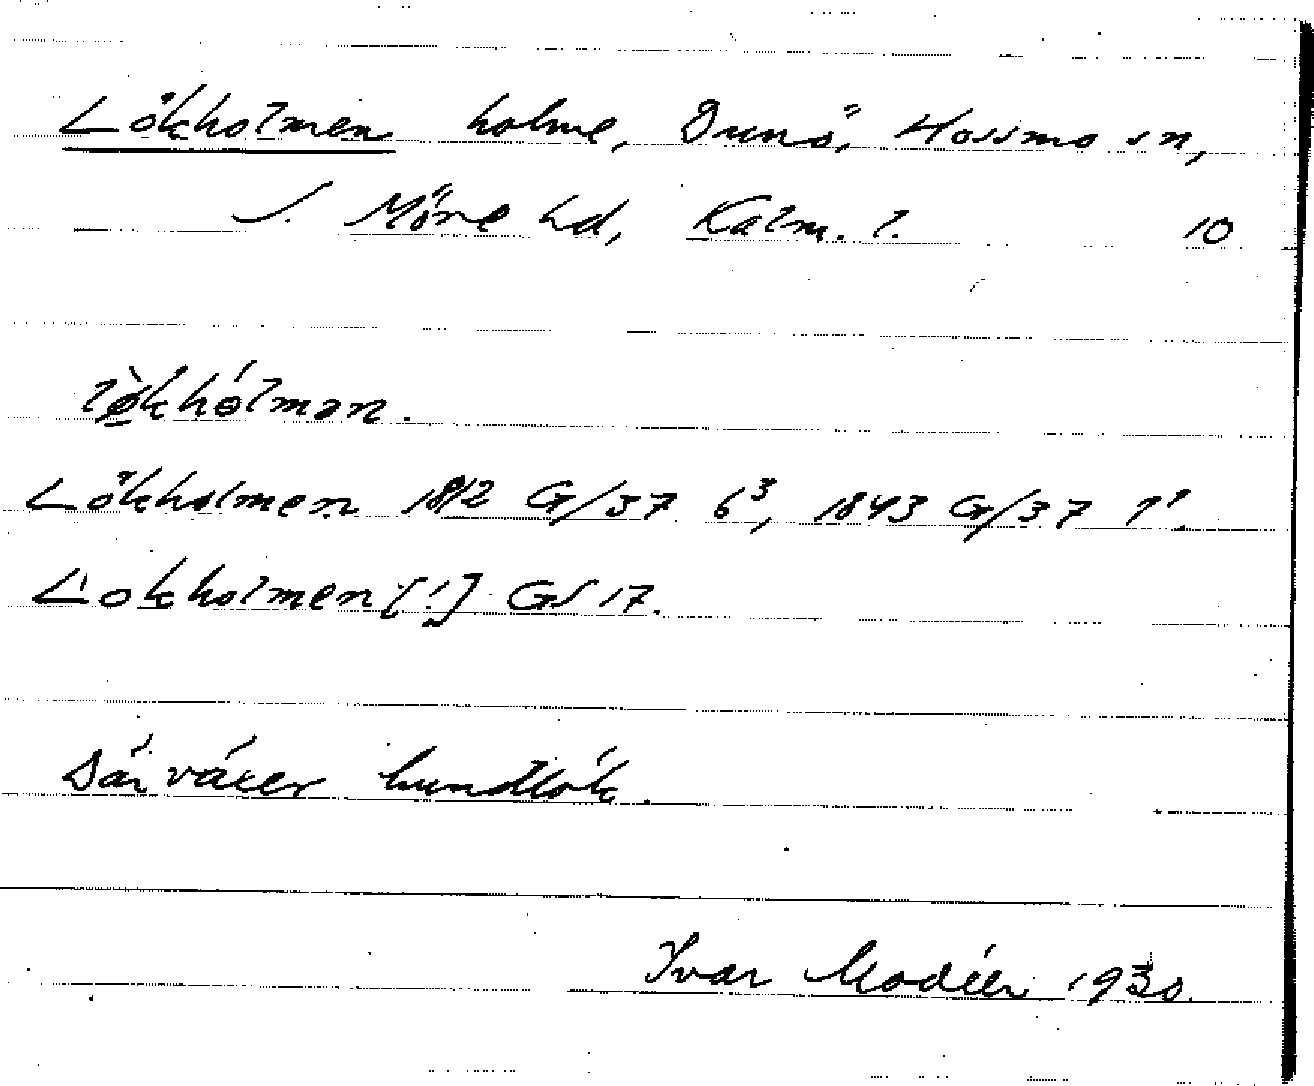 Lökholmen holme, Dunö, Hossmo sn,
S. Möre hd, Kalm. l. 10
lø̀khólmən.
Lökholmen 1812 G/37 6³, 1843 G/37 7¹.
Lokholmen [!] GS 17.
Där växer hundlök.
Ivar Modéer 1930.